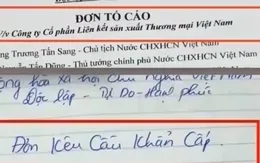 ĐƠN TỐ CÁO
V/v Công ty Cổ phần Liên kết sản xuất Thương mại Việt Nam
Trương Tấn Sang - Chủ tịch Nước CHXHCN Việt Nam
Tấn Dũng - Thủ tướng chính phủ Nước CHXHCN Vi
hòa xã hội Chủ nghĩa Việt
Độc lập - Tự Do - Hạnh phúc
Đơn Kêu Cứu Khẩn Cấp.